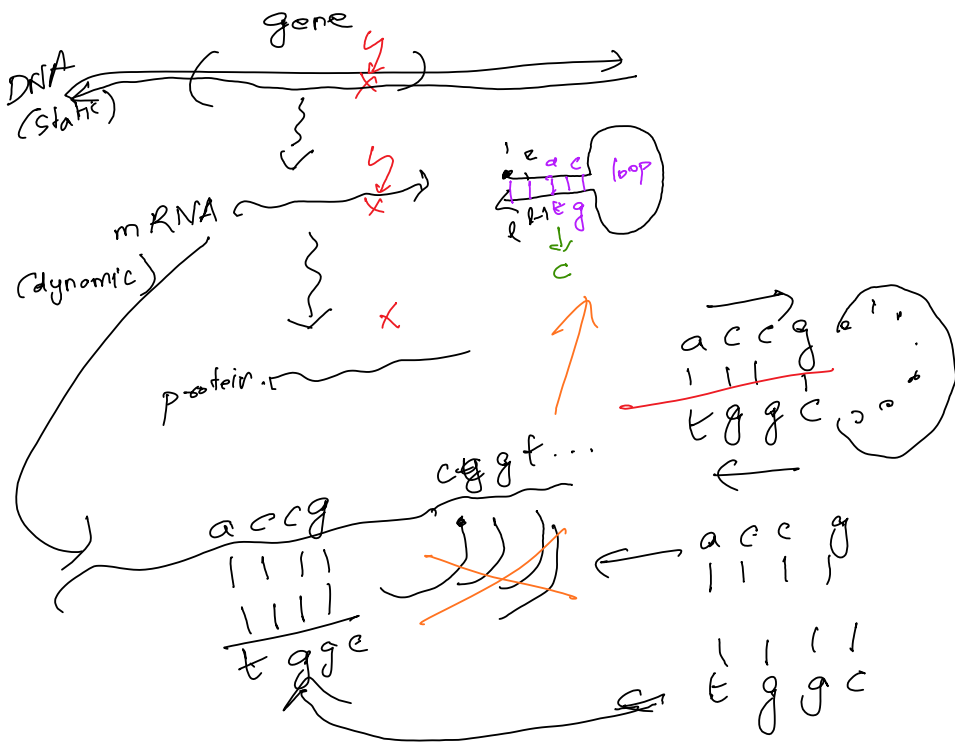 gene
DNA
(static)
mRNA
(dynamic)
protein
1 2 a c
loop
l l-1 t g
c
a c c g
t g g c
c g g t...
a c c g
t g g c
a c c g
t g g c